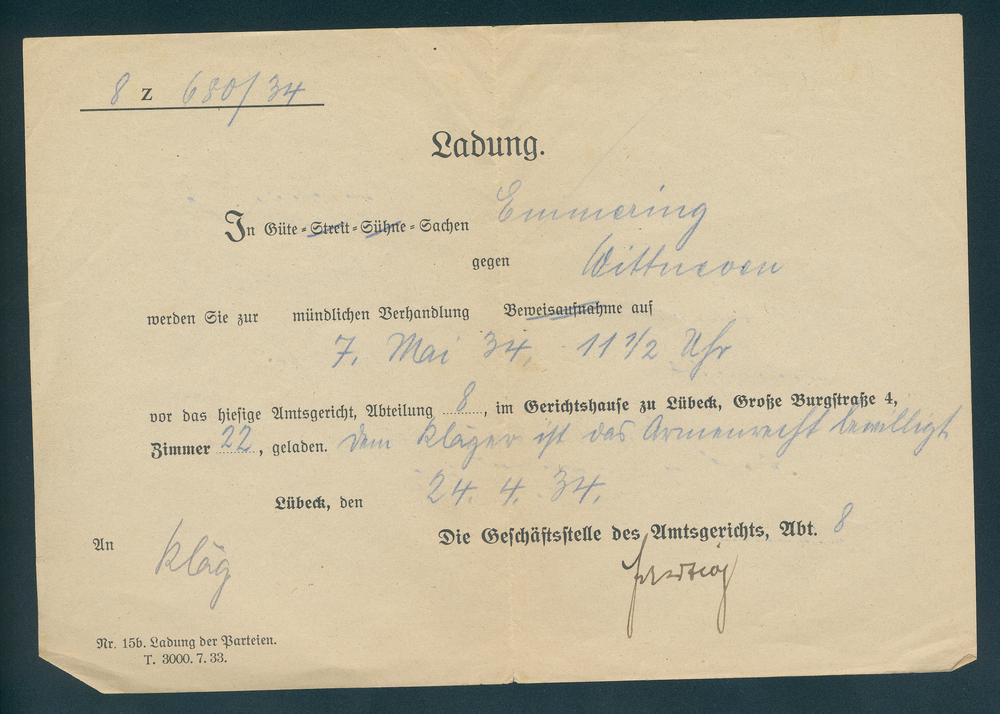 8 Z 680/34
Ladung.
In Güte-Streit-Sühne-Sachen Emmering
gegen Wittneven
werden Sie zur mündlichen Verhandlung Beweisaufnahme auf
7. Mai 34, 11 1/2 Uhr
vor das hiesige Amtsgericht, Abteilung 8, im Gerichtshause zu Lübeck, Große Burgstraße 4,
Zimmer 22, geladen. Dem Kläger ist das Armenrecht bewilligt
Lübeck, den 24. 4. 34.
Die Geschäftsstelle des Amtsgerichts, Abt. 8
An Kläg
Nr. 15b. Ladung der Parteien.
T. 3000. 7. 33.